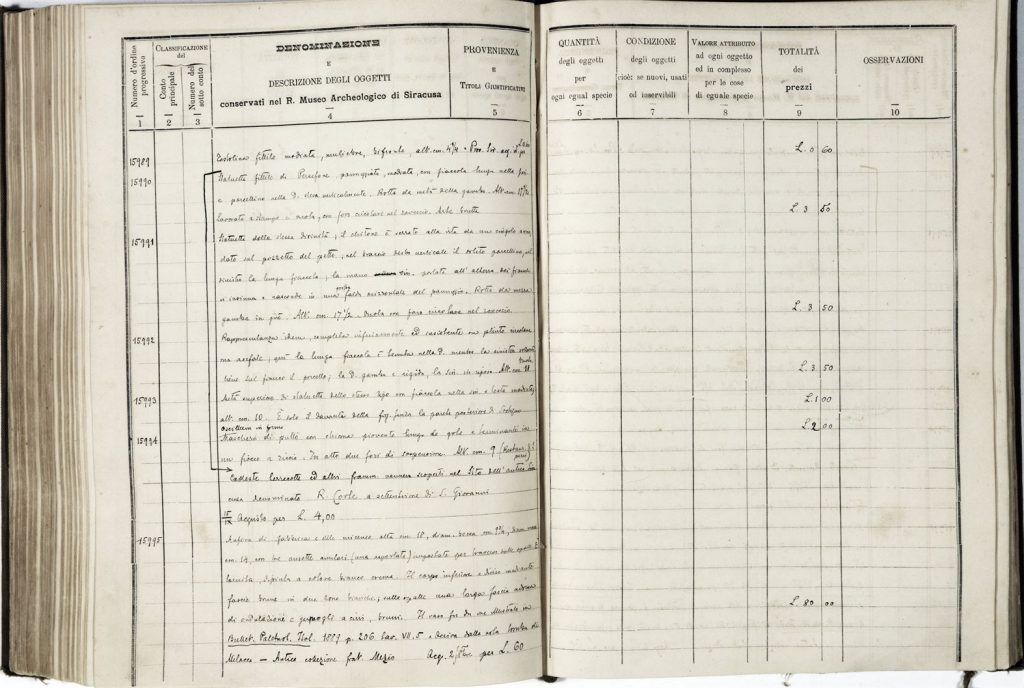 Numero d'ordine progressivo
CLASSIFICAZIONE
del
Conto principale
Numero del sotto conto
DENOMINAZIONE
E
DESCRIZIONE DEGLI OGGETTI
conservati nel R. Museo Archeologico di Siracusa
PROVENIENZA
E
TITOLI GIUSTIFICATIVI
QUANTITÀ
degli oggetti
per
ogni egual specie
CONDIZIONE
degli oggetti
cioè: se nuovi, usati
od inservibili
VALORE ATTRIBUITO
ad ogni oggetto
ed in complesso
per le cose
di eguale specie
TOTALITÀ
dei
prezzi
OSSERVAZIONI
1 2 3 4 5 6 7 8 9 10
15989 fittile modiata, bifronte, alt. cm. 4½ L. 0 60
15990 Statuetta fittile di Persefone, panneggiata, modiata, con fiaccola lunga nella
e porcellino nella D. Rotta da metà della gamba. Alt. cm. 17½
lavorata a stampo e vuota, con foro circolare nel rovescio. L. 3 50
15991 Statuetta della stessa divinità; il chitone è serrato alla vita da un cingolo
sul petto, nel braccio destro verticale il solito porcellino,
sinistra la lunga fiaccola; la mano sin. portata all'altezza del
e nasconde in una falda orizzontale del panneggio. Rotta da mezza
gamba in giù. Alt. cm. 17½. Vuota con foro circolare nel rovescio L. 3 50
15992 Rappresentanza idem, completa inferiormente ed esistente un plinto circolare
ma acefala; qui la lunga fiaccola è tenuta nella D. mentre la sinistra
tiene sul fianco il porcello; la D. gamba è rigida, la sin. in riposo. Alt. cm. 18. L. 3 50
15993 Metà superiore di statuetta dello stesso tipo con fiaccola nella sin. e testa modiata;
alt. cm. 10. È solo il davanti della fig. senza la parte posteriore L. 1 00
oscillum in forma
15994 Maschera di putto con chioma piovente lungo le gote e terminante in L. 2 00
un fiocco a riccio. In alto due fori di sospensione. Alt. cm. 9
Codeste terrecotte ed altri framm. vennero scoperti nel sito dell'antica
denominato R. Corte a settentrione di S. Giovanni
Acquisto per L. 4,00
15995 Anfora di fabbrica e stile miceneo alta cm. 18, diam. bocca cm.
cm. 14, con tre ansette anulari (una asportata) impostate per traverso sulle spalle. È
lacunosa, dipinta a colore bianco crema. Il corpo inferiore è diviso mediante
fascie brune in due zone bianche; sulle spalle una larga fascia adorna
di ondulazioni e bruni. Il vaso fu da me illustrato in L. 80 00
Bullet. Paletnol. Ital. 1889 p. 206 tav. VII. 5 e deriva dalla sola tomba di
Milocca — Antica collezione frat. Mezio Acq. per L. 60